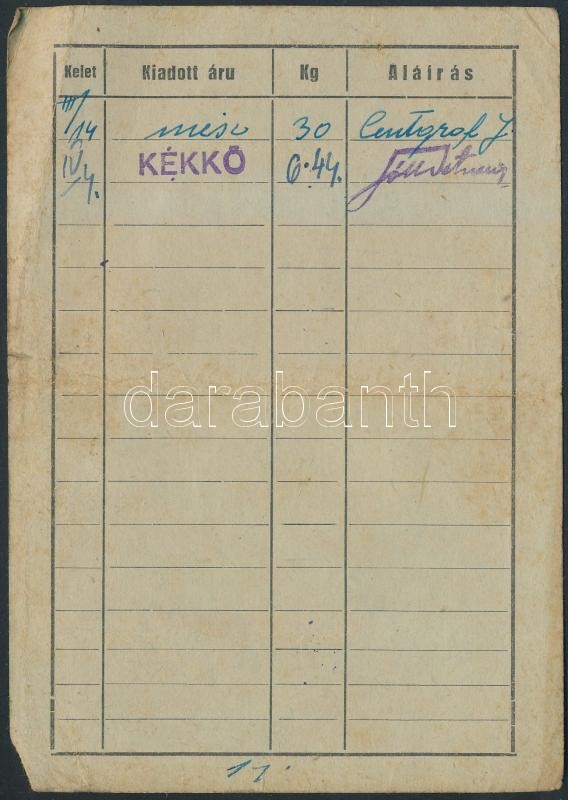 Kelet Kiadott áru Kg Aláírás
III/14 mész 30 Centgraf J.
IV/4. KÉKKŐ 6.44.
darabanth
17.